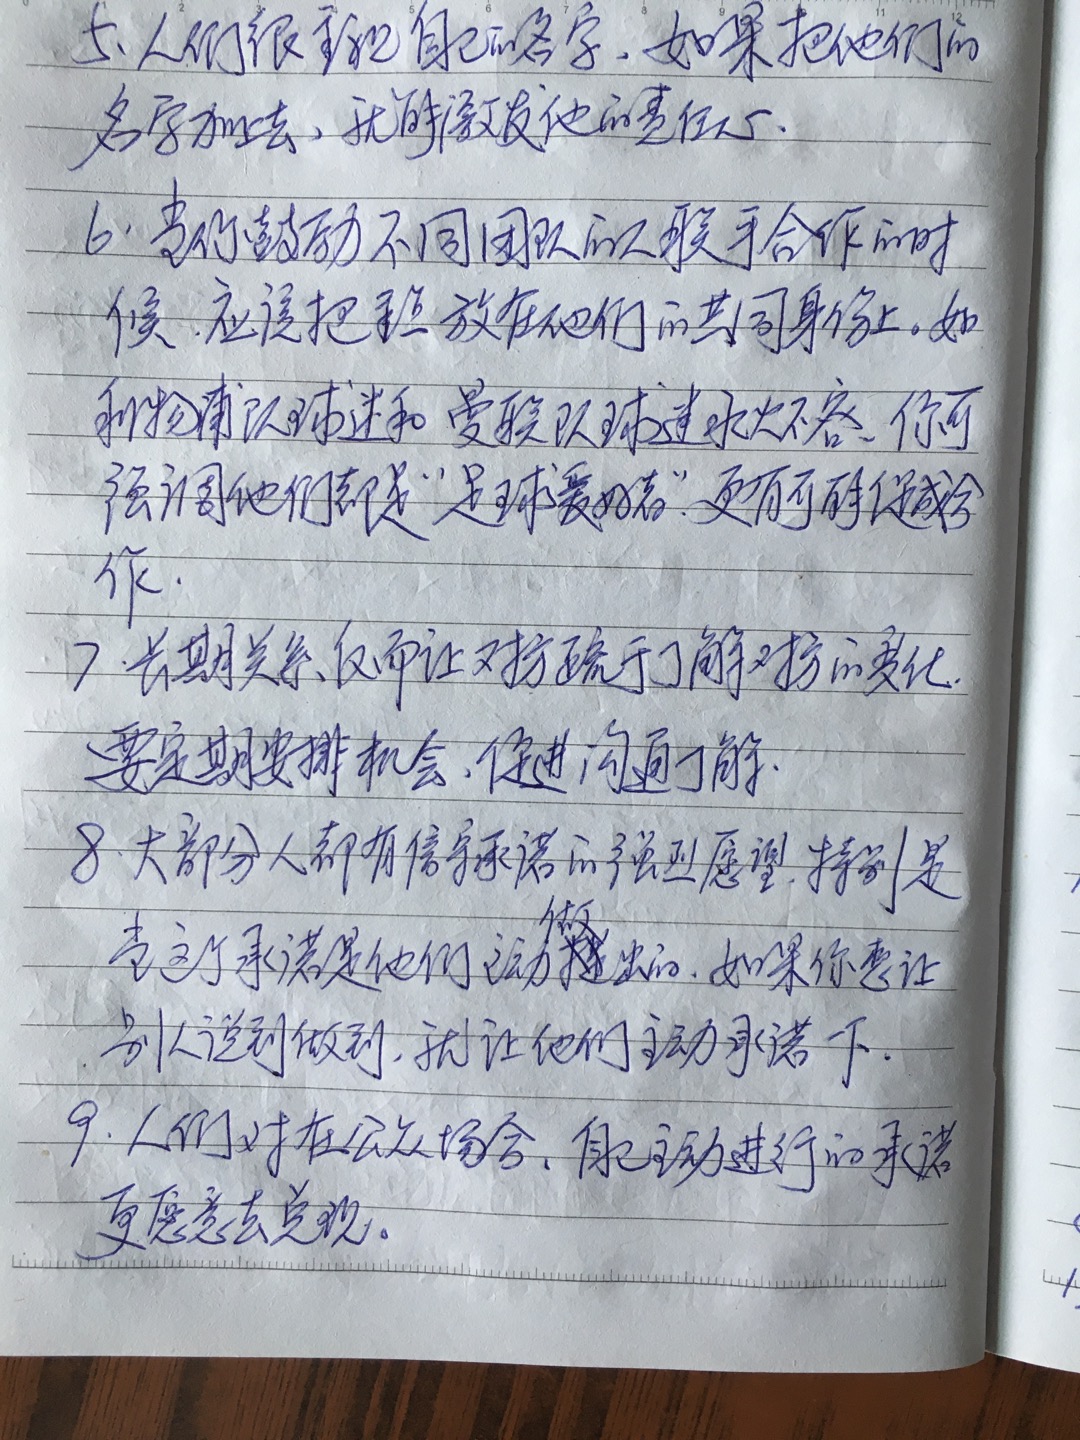 5、人们很重视自己的名字、如果把他们的
名字加上去、就能激发他的责任心.
6.当你鼓动不同团队的人联手合作的时
候.应该把重点放在他们的共同身份上。如
利物浦队球迷和曼联队球迷水火不容、你可
强调他们都是“足球爱好者”.更有可能促成合
作.
7.长期关系、反而让对方疏于了解对方的变化.
要定期安排机会、促进沟通了解.
8.大部分人都有信守承诺的强烈愿望.特别是
当这个承诺是他们主动做出的.如果你想让
别人说到做到.就让他们主动承诺下.
9.人们对在公众场合、自己主动进行的承诺
更愿意去兑现。